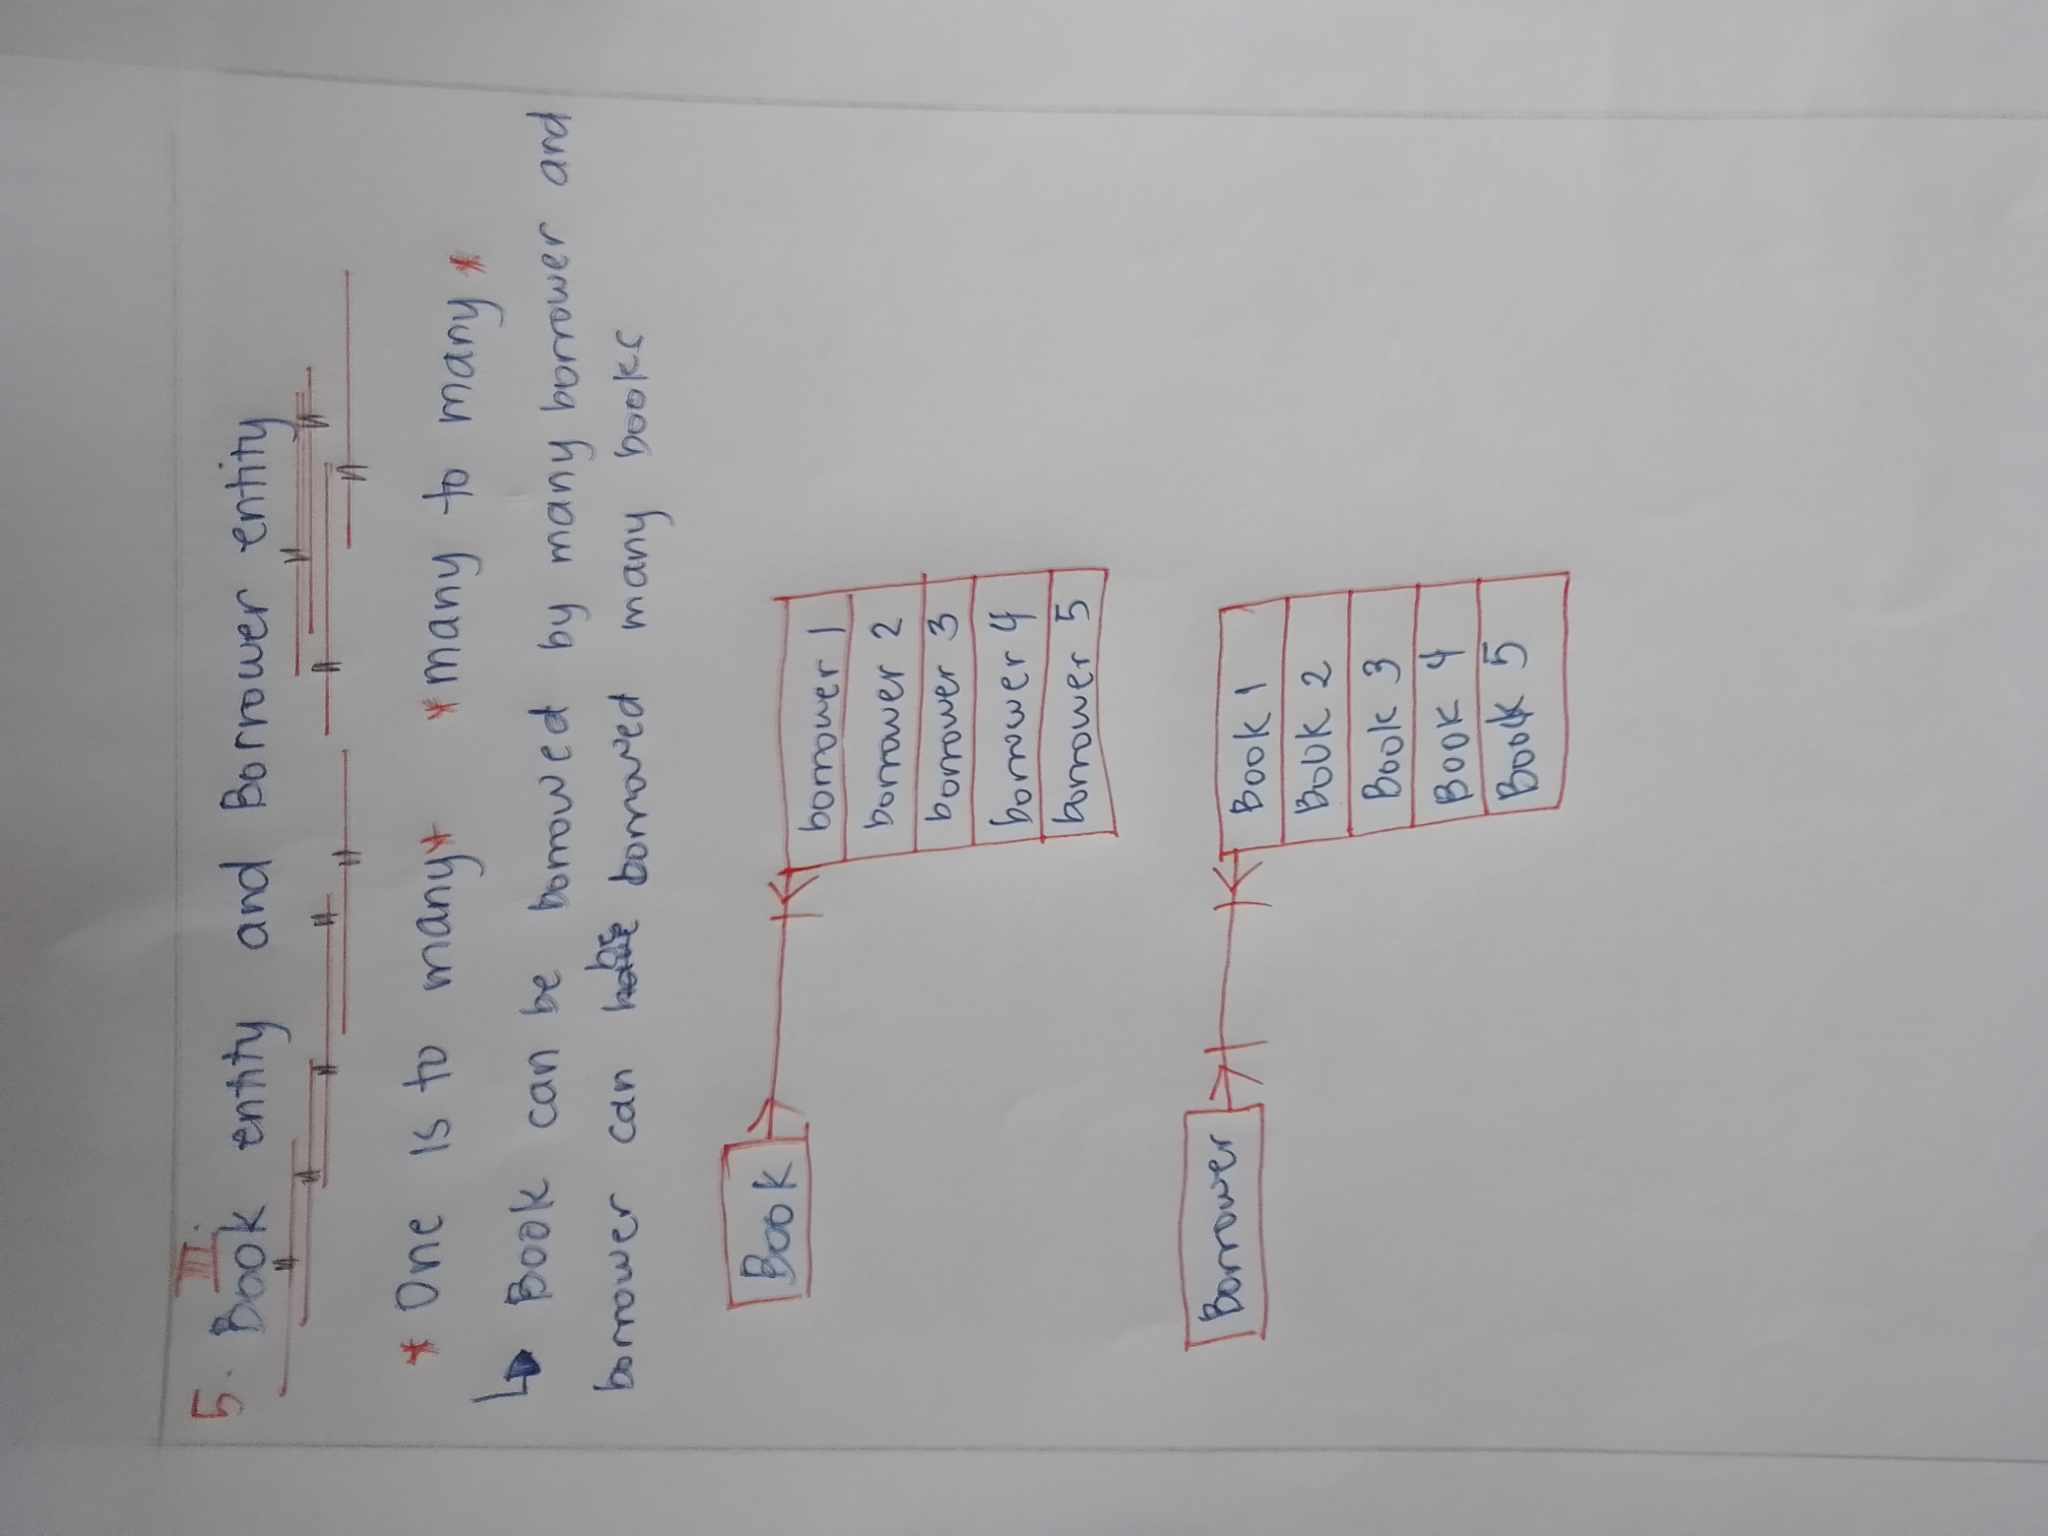 III.
5. Book entity and Borrower entity
* One is to many* *many to many*
↳ Book can be borrowed by many borrower and
borrower can be borrowed many books
Book
borrower 1
borrower 2
borrower 3
borrower 4
borrower 5
Borrower
Book 1
Book 2
Book 3
Book 4
Book 5